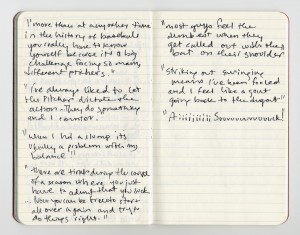 "more than at any other time
in the history of baseball
you really have to know
yourself because it's a big
challenge facing so many
different pitchers."
"I've always liked to let
the pitcher dictate the
action - They do something
and I counter.
"When I hit a slump its
usually a problem with my
balance"
"There are times during the course
of a season where you just
have to admit that you suck
... Now you can be free to start
all over again and try to
do things right."
"most guys feel the
dumbest when they
get called out with the
bat on their shoulder
Striking out swinging
means I've been fooled
and I feel like a goat
going back to the dugout"